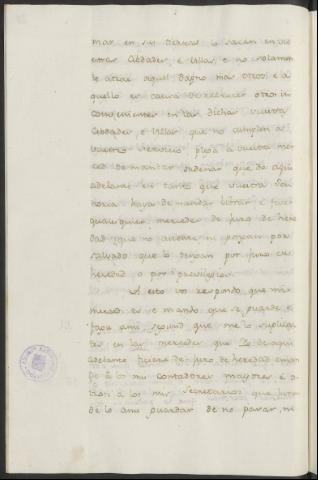 mas en sus tierras lo sacan en vue
stras Cibdades, e Villas, e no solamen
te atrae aquel dagno mas otros e a
quello es causa de recrecer otros in
convenientes en las dichas vuestras
Cibdades, e Villas que no cumplen a
vuestro servicio plega a vuestra mer
ced de mandar ordenar que de aqui
adelante en tanto que vuestra Sen
noria haya de mandar librar e facer
qualesquier mercedes de juro de here
dad que no anden, ni pongan por
salvado que lo tengan por juro de
heredad, o por previllegios.
A esto vos respondo, que mi
merced es e mando que se guarde, e
faga ansi segund que me lo suplicas
tes en las mercedes que Yo de aqui
adelante ficiere de juro de heredad e man
do a los mis contadores mayores, e o
trosi a los mis Secretarios que juren
de lo ansi guardar de no pasar, ni